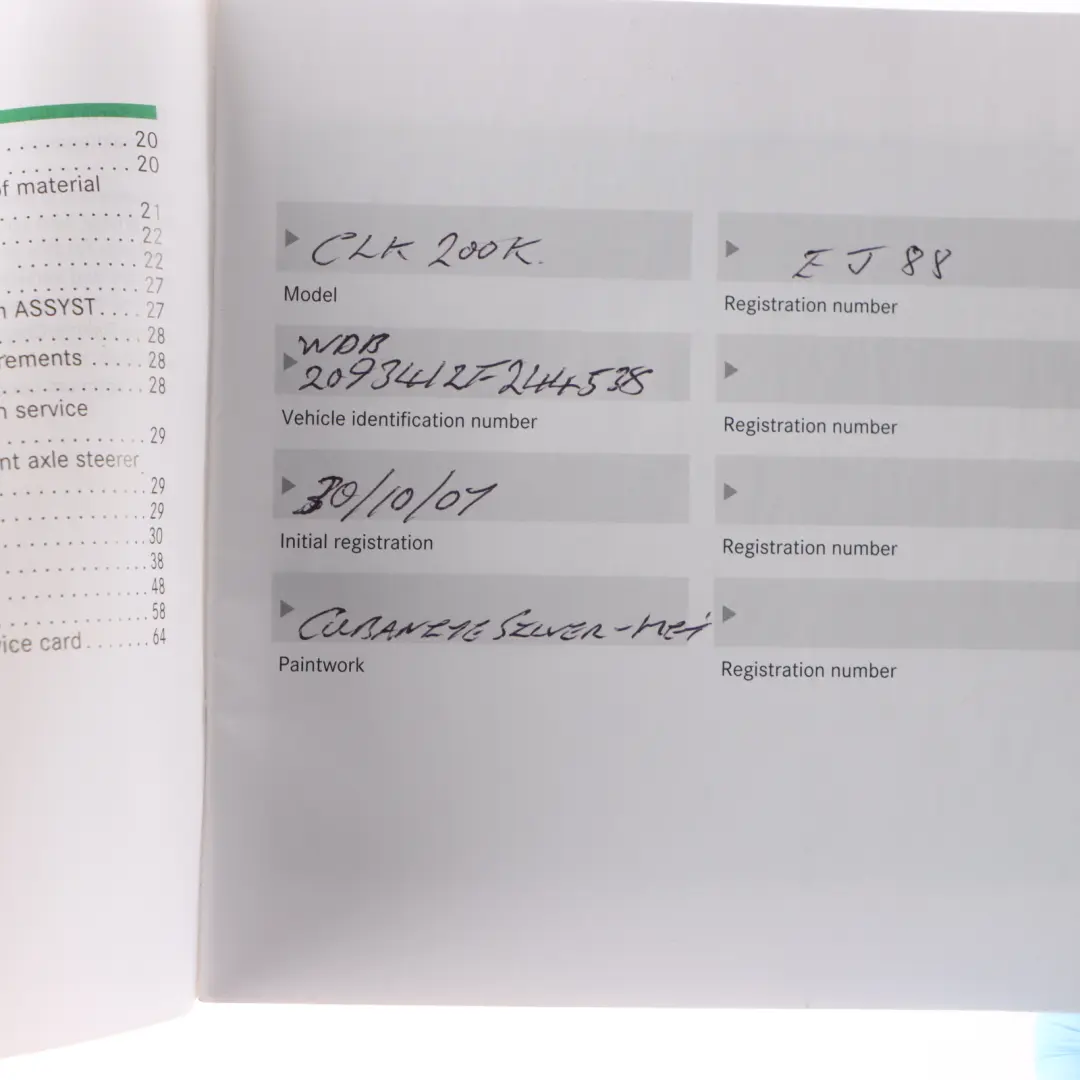 . . . . . . . . . . . 20
. . . . . . . . . . . 20
of material
. . . . . . . . . . . 21
. . . . . . . . . . . 22
. . . . . . . . . . . 22
. . . . . . . . . . . 27
ASSYST. . . . 27
. . . . . . . . . . . 28
rements . . . . . 28
. . . . . . . . . . . 28
service
. . . . . . . . . . . 29
nt axle steerer
. . . . . . . . . . . 29
. . . . . . . . . . . 29
. . . . . . . . . . . 30
. . . . . . . . . . . 38
. . . . . . . . . . . 48
. . . . . . . . . . . 58
ice card . . . . . . . 64
CLK 200K.
Model
WDB
2093412F244538
Vehicle identification number
30/10/07
Initial registration
CUBANITE SILVER-MET
Paintwork
EJ 88
Registration number
Registration number
Registration number
Registration number